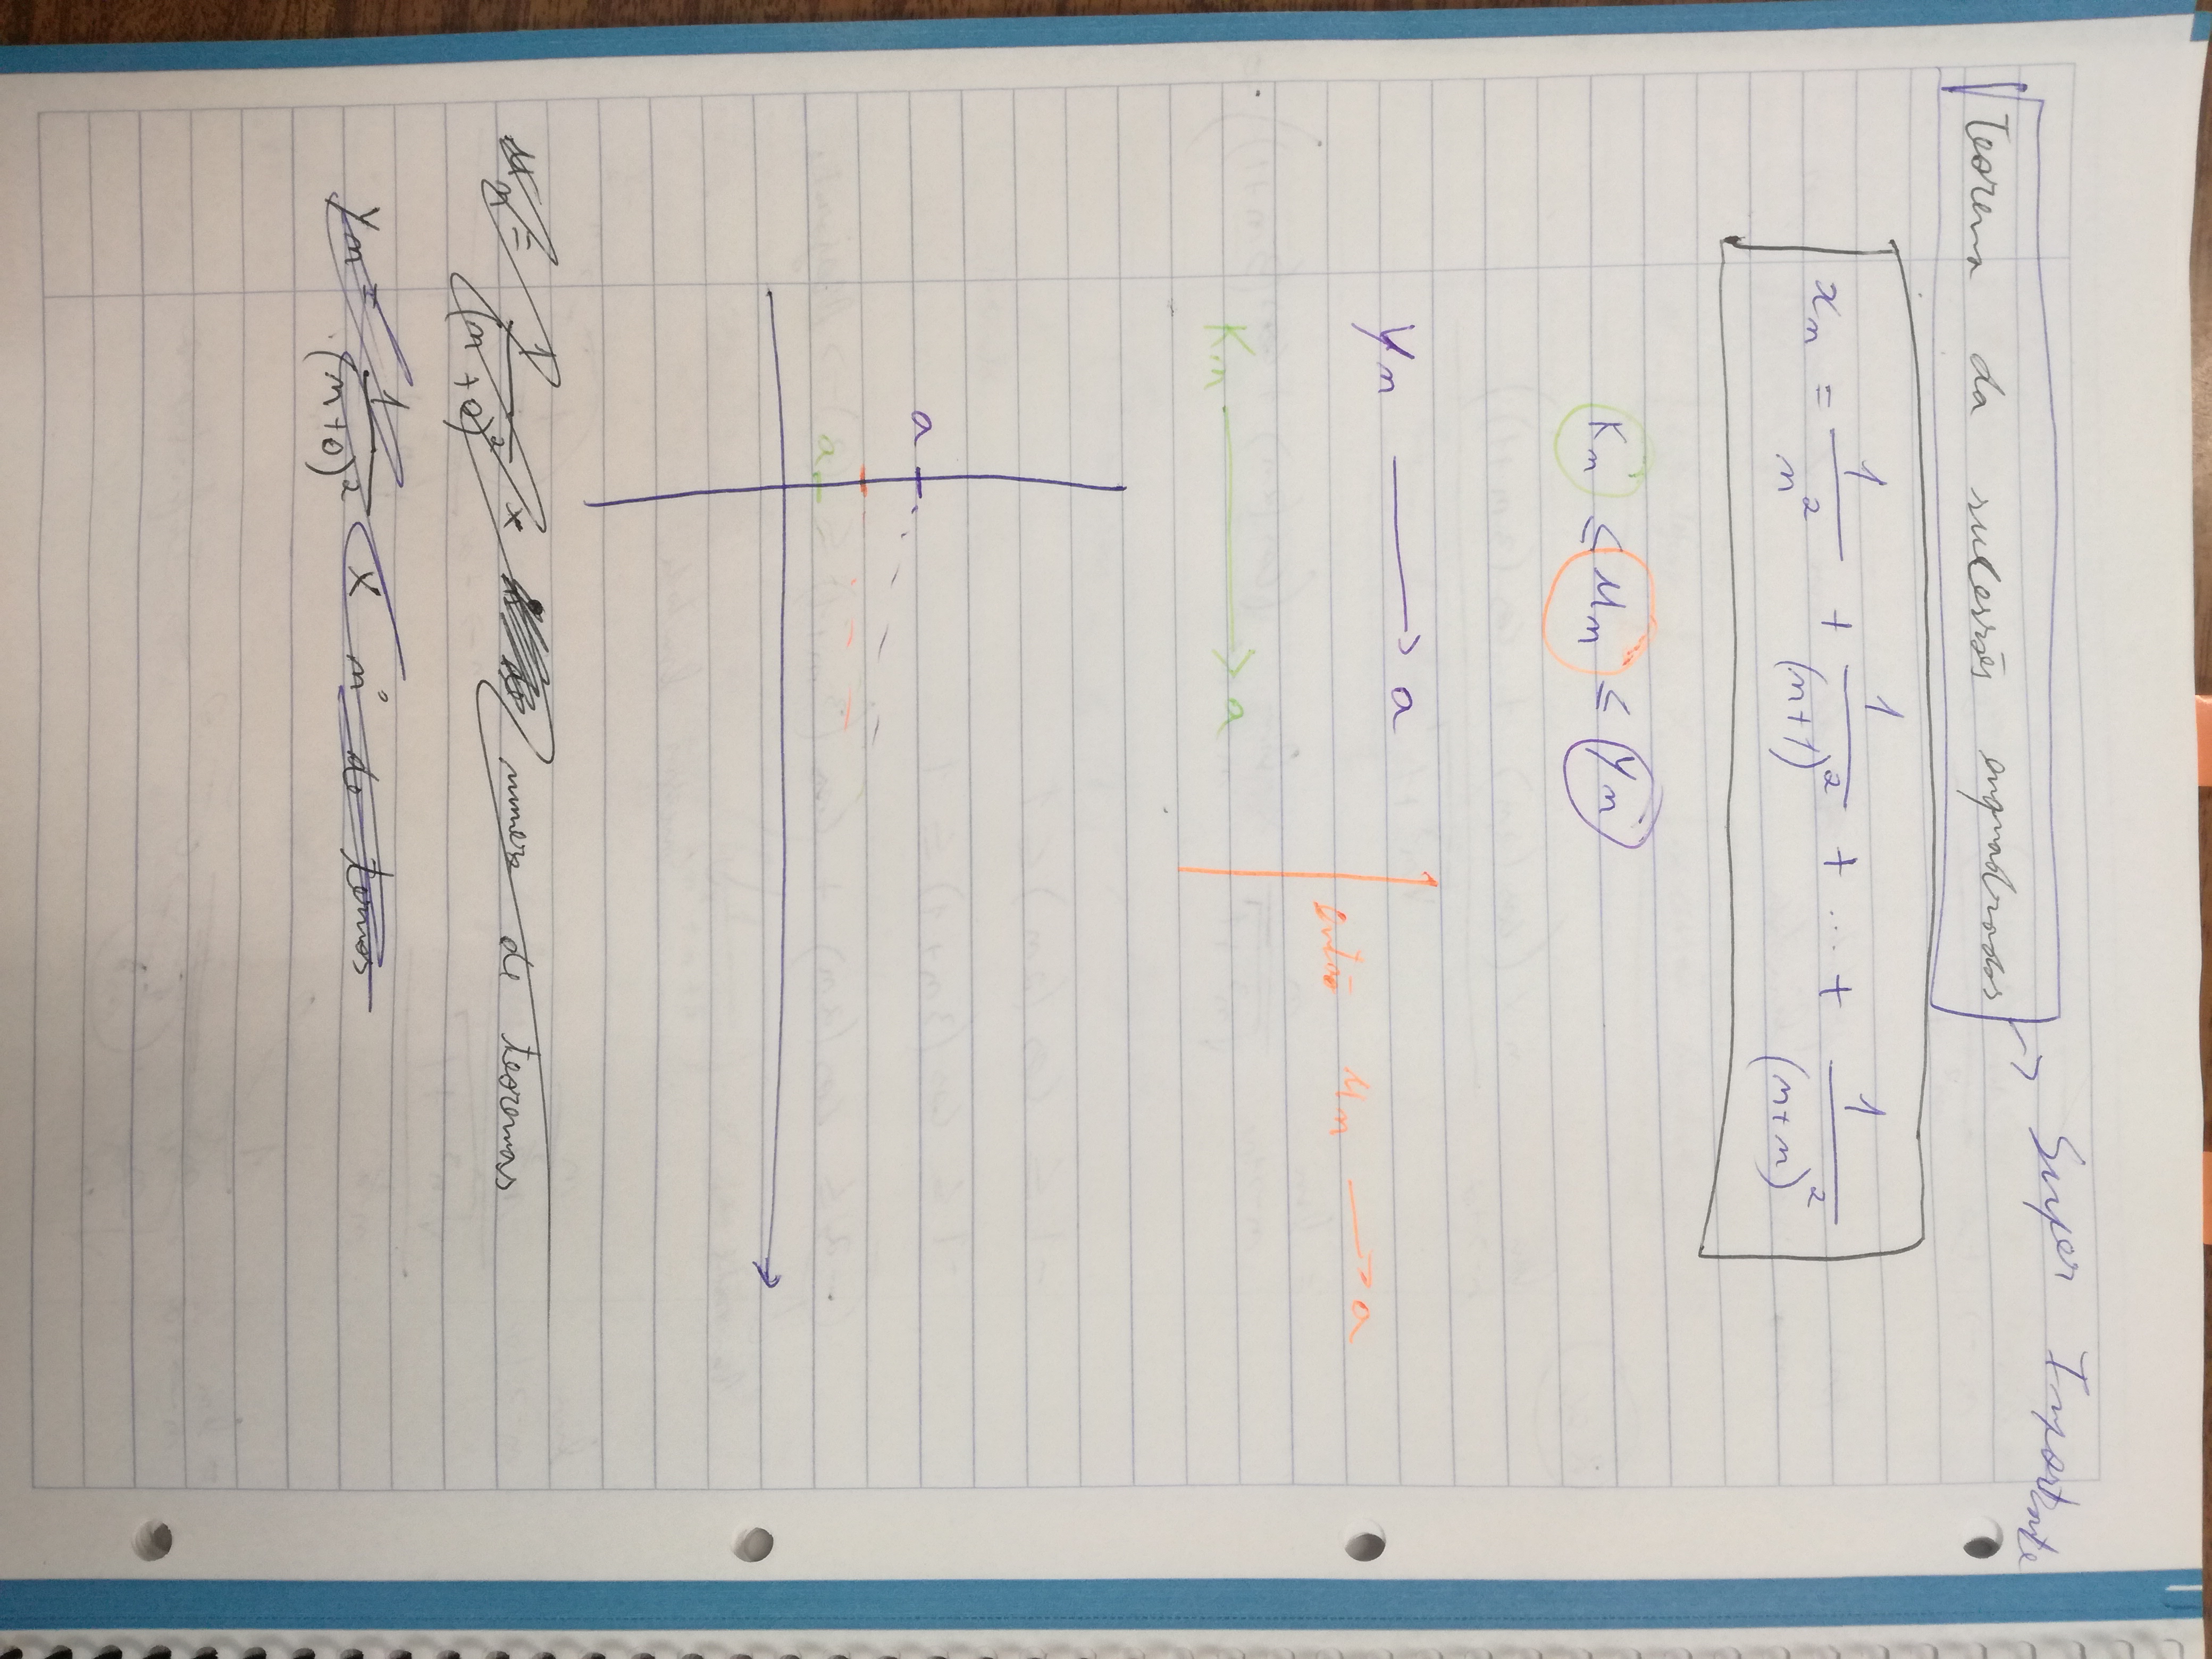 Teorema da sucessões enquadradas → Super Importante
xn = 1/n² + 1/(n+1)² + ... + 1/(n+n)²
Kn ≤ Un ≤ Yn
Yn → a
Então Un → a
Kn → a
a
a
n = 1/(n+0)² × numero de teoremas
Yn = 1/(n+0)² × nº de termos